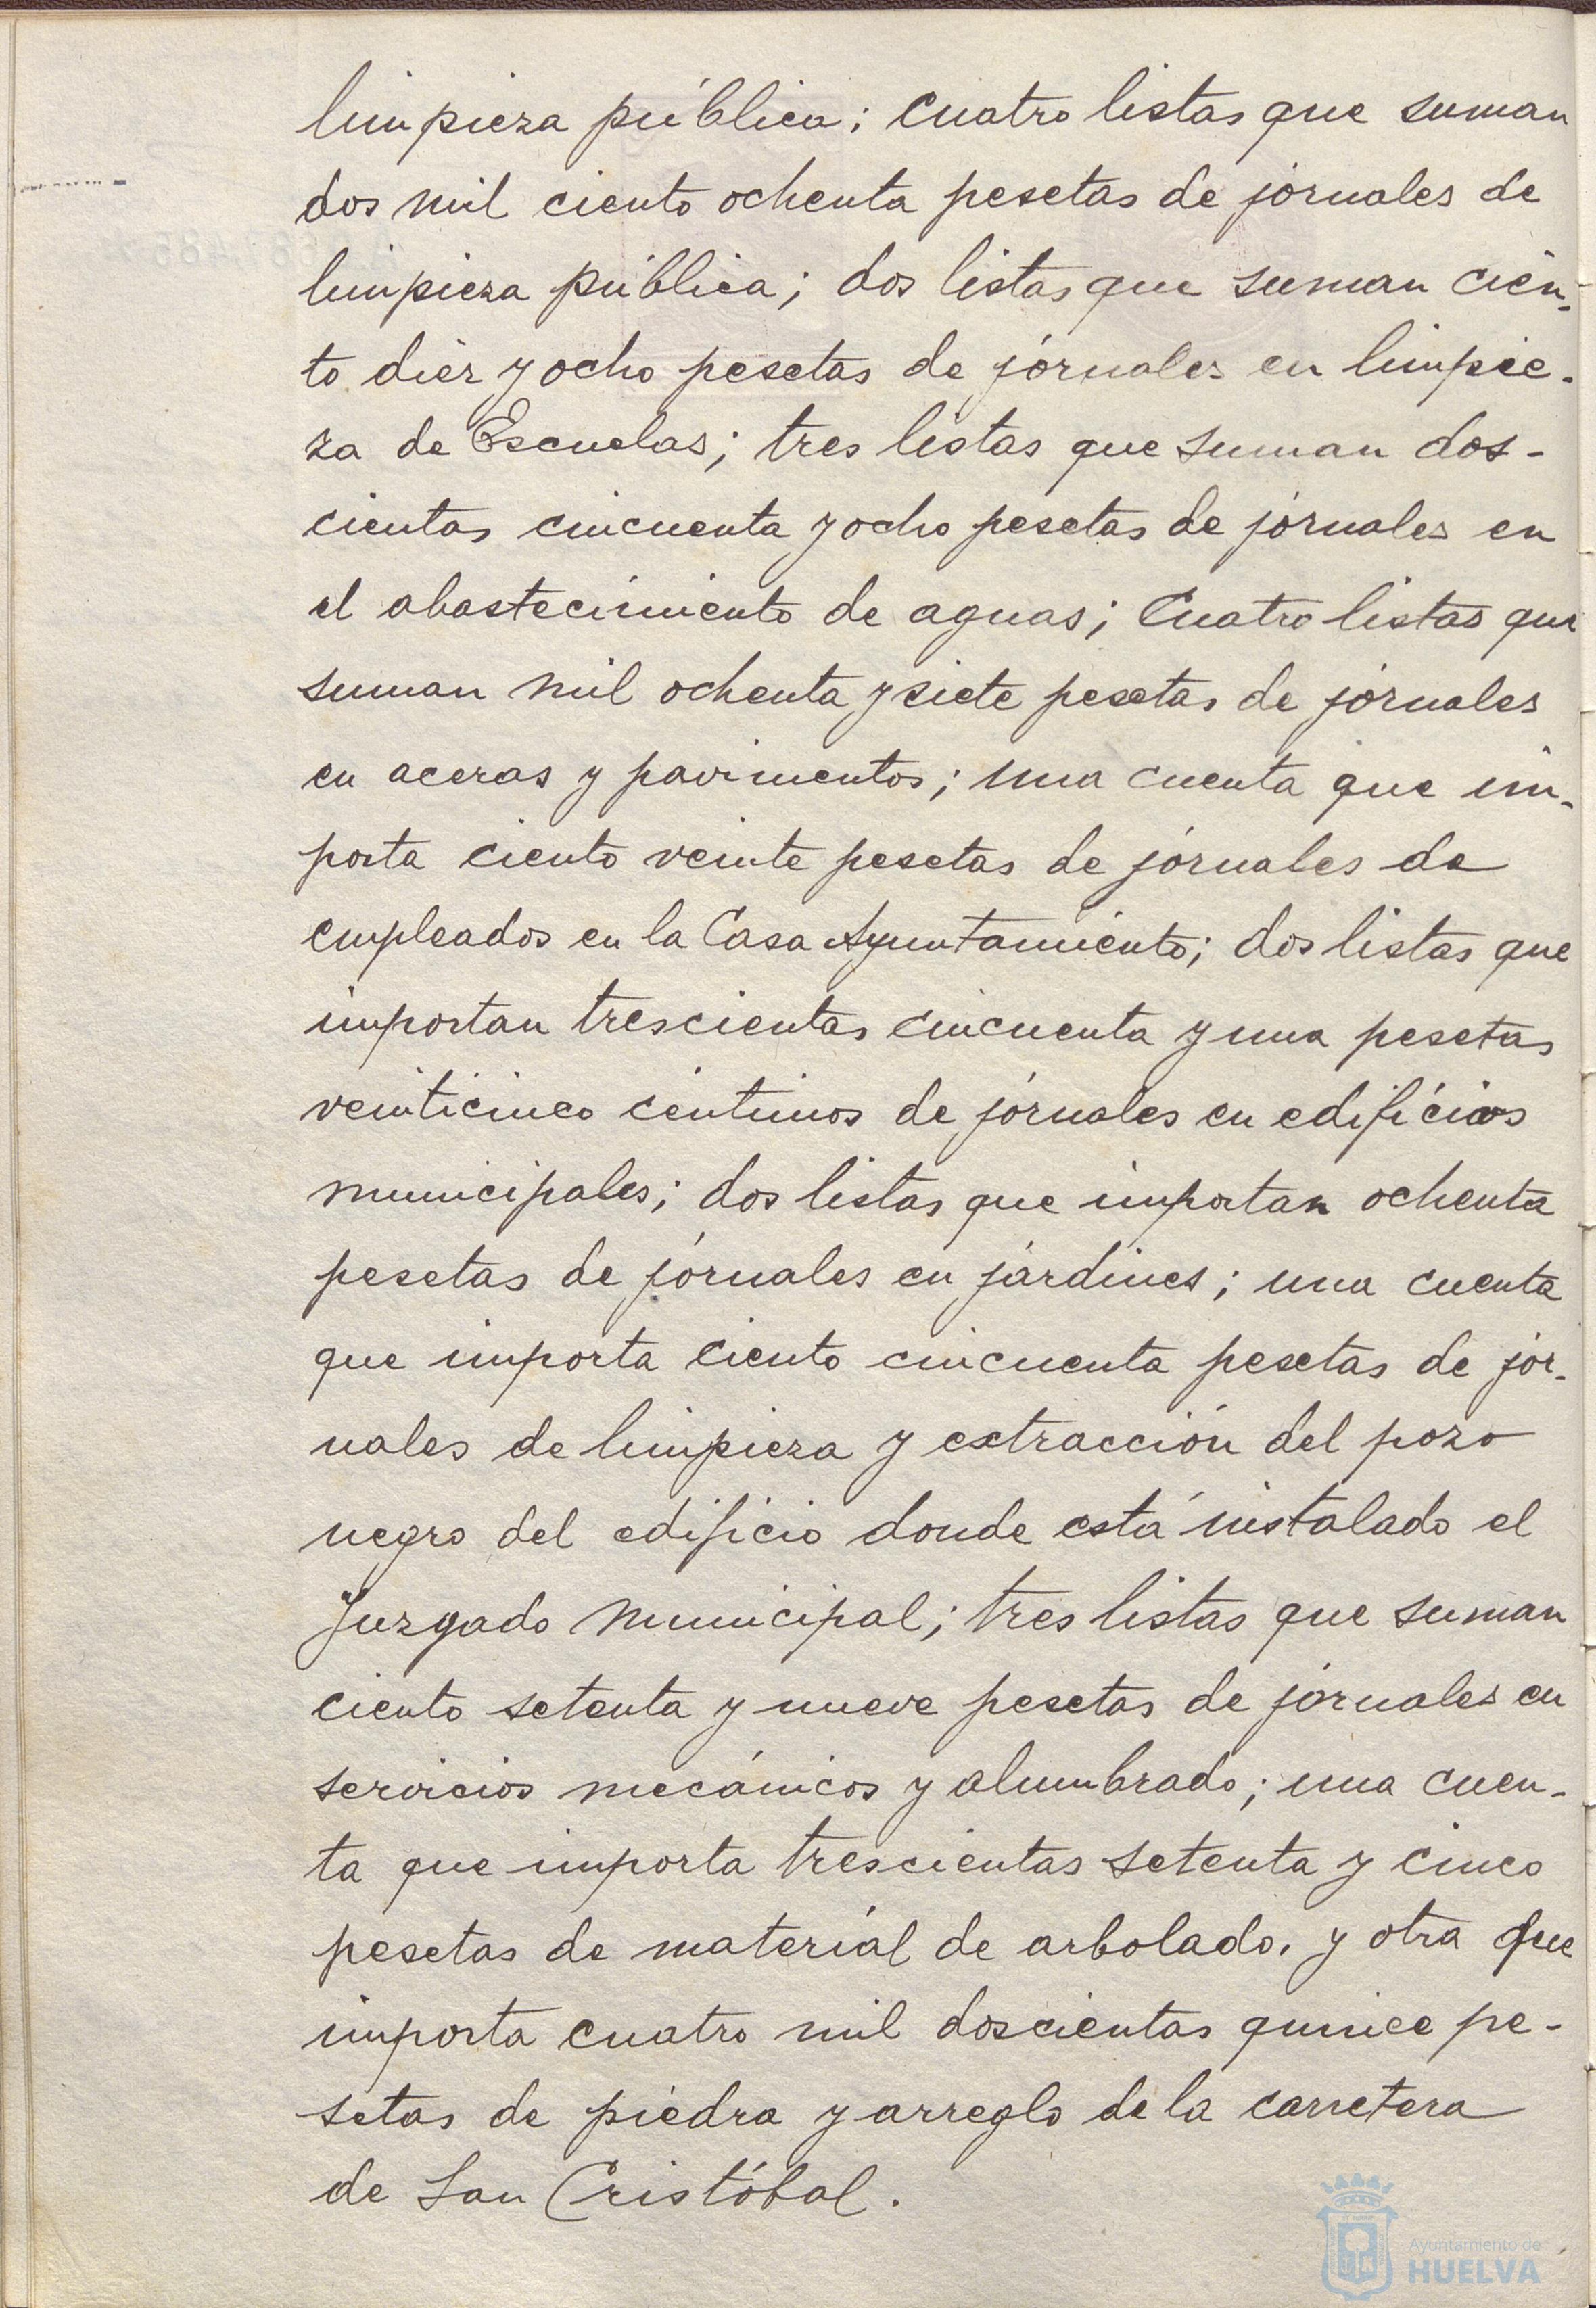 limpieza pública; cuatro listas que suman
dos mil ciento ochenta pesetas de jornales de
limpieza pública; dos listas que suman cien-
to diez y ocho pesetas de jornales en limpie-
za de Escuelas; tres listas que suman dos-
cientas cincuenta y ocho pesetas de jornales en
el abastecimiento de aguas; cuatro listas que
suman mil ochenta y siete pesetas de jornales
en aceras y pavimentos; una cuenta que im-
porta ciento veinte pesetas de jornales de
empleados en la Casa Ayuntamiento; dos listas que
importan trescientas cincuenta y una pesetas
veinticinco céntimos de jornales en edificios
municipales; dos listas que importan ochenta
pesetas de jornales en jardines; una cuenta
que importa ciento cincuenta pesetas de jor-
nales de limpieza y extracción del pozo
negro del edificio donde está instalado el
Juzgado Municipal; tres listas que suman
ciento setenta y nueve pesetas de jornales en
servicios mecánicos y alumbrado; una cuen-
ta que importa trescientas setenta y cinco
pesetas de material de arbolado. y otra que
importa cuatro mil doscientas quince pe-
setas de piedra y arreglo de la carretera
de San Cristóbal.
Ayuntamiento de
HUELVA